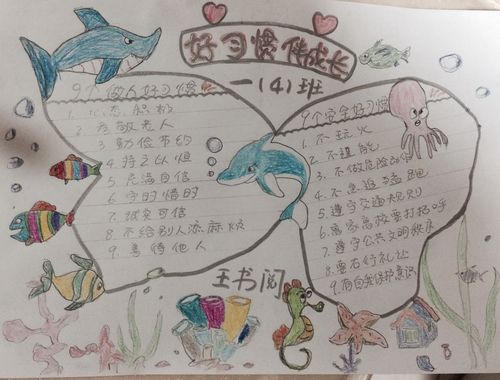 好习惯伴成长
一(4)班
9个做人好习惯
1. 心态积极
2. 孝敬老人
3. 勤俭节约
4. 持之以恒
5. 充满自信
6. 守时惜时
7. 诚实可信
8. 不给别人添麻烦
9. 善待他人
9个安全好习惯
1. 不玩火
2. 不
3. 不做危险
4. 不急追猛跑
5. 遵守交通规则
6. 离家离校要打招呼
7. 遵守公共文明秩序
8. 要右行礼让
9. 有自我保护意识
王书阅